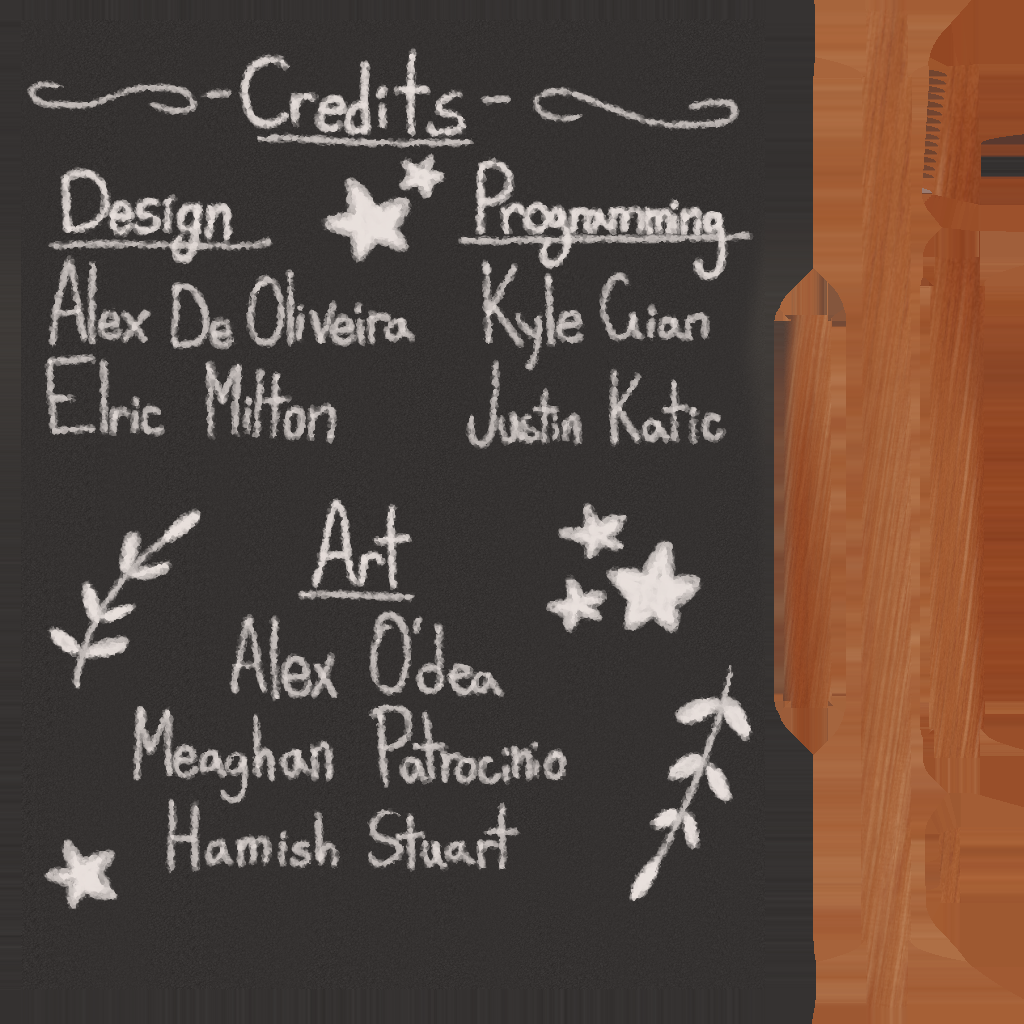 Credits
Design
Alex De Oliveira
Elric Milton
Programming
Kyle Gian
Justin Katic
Art
Alex O'dea
Meaghan Patrocinio
Hamish Stuart